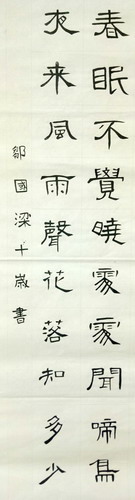 春眠不覺曉處處聞啼鳥
夜来風雨聲花落知多少
鄒國梁十歲書